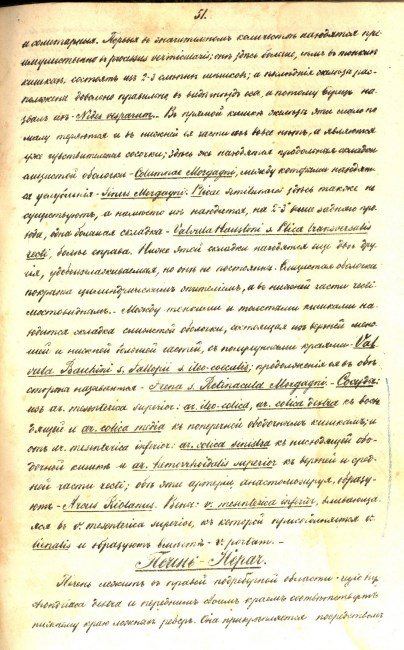 51.
и солитарныя. Первыя в значительном количестве находятся пре-
имущественно в processus vermicularis; они здесь больше, чем в тонких
кишках, состоят из 2-3 мешков; и последния железы рас-
положены довольно правильно в виде гнезд оса, а потому
назвал их - Nidus vesparum. В прямой кишке железы эти мало по
малу теряются и в нижней ея части их вовсе нет, а являются
уже чувствительные сосочки; здесь же находятся продольные складки
слизистой оболочки - Columnae Morgagni, между которыми находят-
ся углубления - Sinus Morgagni. Plicae semilunares здесь также не
существуют, а вместо их находится, на 2-3" выше задняго про-
хода, одна большая складка - Valvula Houstoni s. Plica transversalis
recti, более справа. Ниже этой складки находятся еще две дру-
гия, но оне не постоянны. Слизистая оболочка
покрыта цилиндрическим эпителием, а в нижней части recti
мостовидным. - Между тонкими и толстыми кишками на-
ходится складка слизистой оболочки, состоящая из верхней мень-
шей и нижней большей частей, с полулунными краями - Val-
vula Bauchini s. Fallopii s. ileo-coecalis; продолжения ея в обе
стороны называются - Frena s. Retinacula Morgagni. - Сосуды:
из ar. mesenterica superior: ar. ileo-colica, ar. colica dextra к восхо-
дящей и ar. colica media к поперечной ободочным кишкам; и
от ar. mesenterica inferior: ar. colica sinistra к нисходящей обо-
дочной кишке и ar. hemorrhoidalis superior к верхней и сред-
ней части recti; обе эти артерии анастомозируя, образу-
ют - Arcus Riolanus. Вены: v. mesenterica inferior, вливающа-
яся в v. mesenterica superior, к которой присоединяется v.
lienalis и образуют вместе - v. portam. -
Печень - Hepar.
Печень лежит в правой подреберной области - hypo-
chondriaca dextra и передним своим краем соответствует
нижнему краю ложных ребер. Она прикрепляется посредством